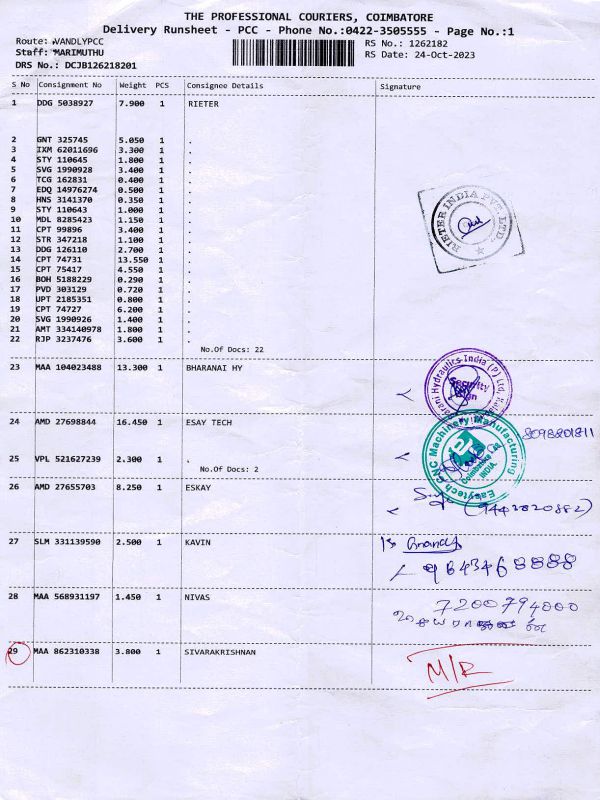 THE PROFESSIONAL COURIERS, COIMBATORE
Delivery Runsheet - PCC - Phone No.:0422-3505555 - Page No.:1
Route: VANDLYPCC RS No.: 1262182
Staff: MARIMUTHU RS Date: 24-Oct-2023
DRS No.: DCJB126218201
S No Consignment No Weight PCS Consignee Details Signature
1 DDG 5038927 7.900 1 RIETER
2 GNT 325745 5.050 1 .
3 IXM 62011696 3.300 1 .
4 STY 110645 1.800 1 .
5 SVG 1990928 3.400 1 .
6 TCG 162831 0.400 1 .
7 EDQ 14976274 0.500 1 .
8 HNS 3141370 0.350 1 .
9 STY 110643 1.000 1 .
10 MDL 8285423 1.150 1 .
11 CPT 99896 3.400 1 .
12 STR 347218 1.100 1 .
13 DDG 126110 2.700 1 .
14 CPT 74731 13.550 1 .
15 CPT 75417 4.550 1 .
16 BOH 5188229 0.290 1 .
17 PVD 303129 0.720 1 .
18 UPT 2185351 0.800 1 .
19 CPT 74727 6.200 1 .
20 SVG 1990926 1.400 1 .
21 AMT 334140978 1.800 1 .
22 RJP 3237476 3.600 1 .
No.Of Docs: 22
RIETER INDIA PVT. LTD.
23 MAA 104023488 13.300 1 BHARANAI HY
Hydraulics India (P) Ltd,
Security
24 AMD 27698844 16.450 1 ESAY TECH
8098801811
Easytech CNC Machinery Manufacturing
INDIA.
25 VPL 521627239 2.300 1 .
No.Of Docs: 2
26 AMD 27655703 8.250 1 ESKAY
(9442820882)
27 SLM 331139590 2.500 1 KAVIN
9843468888
28 MAA 568931197 1.450 1 NIVAS
7200794000
29 MAA 862310338 3.800 1 SIVARAKRISHNAN
M/R